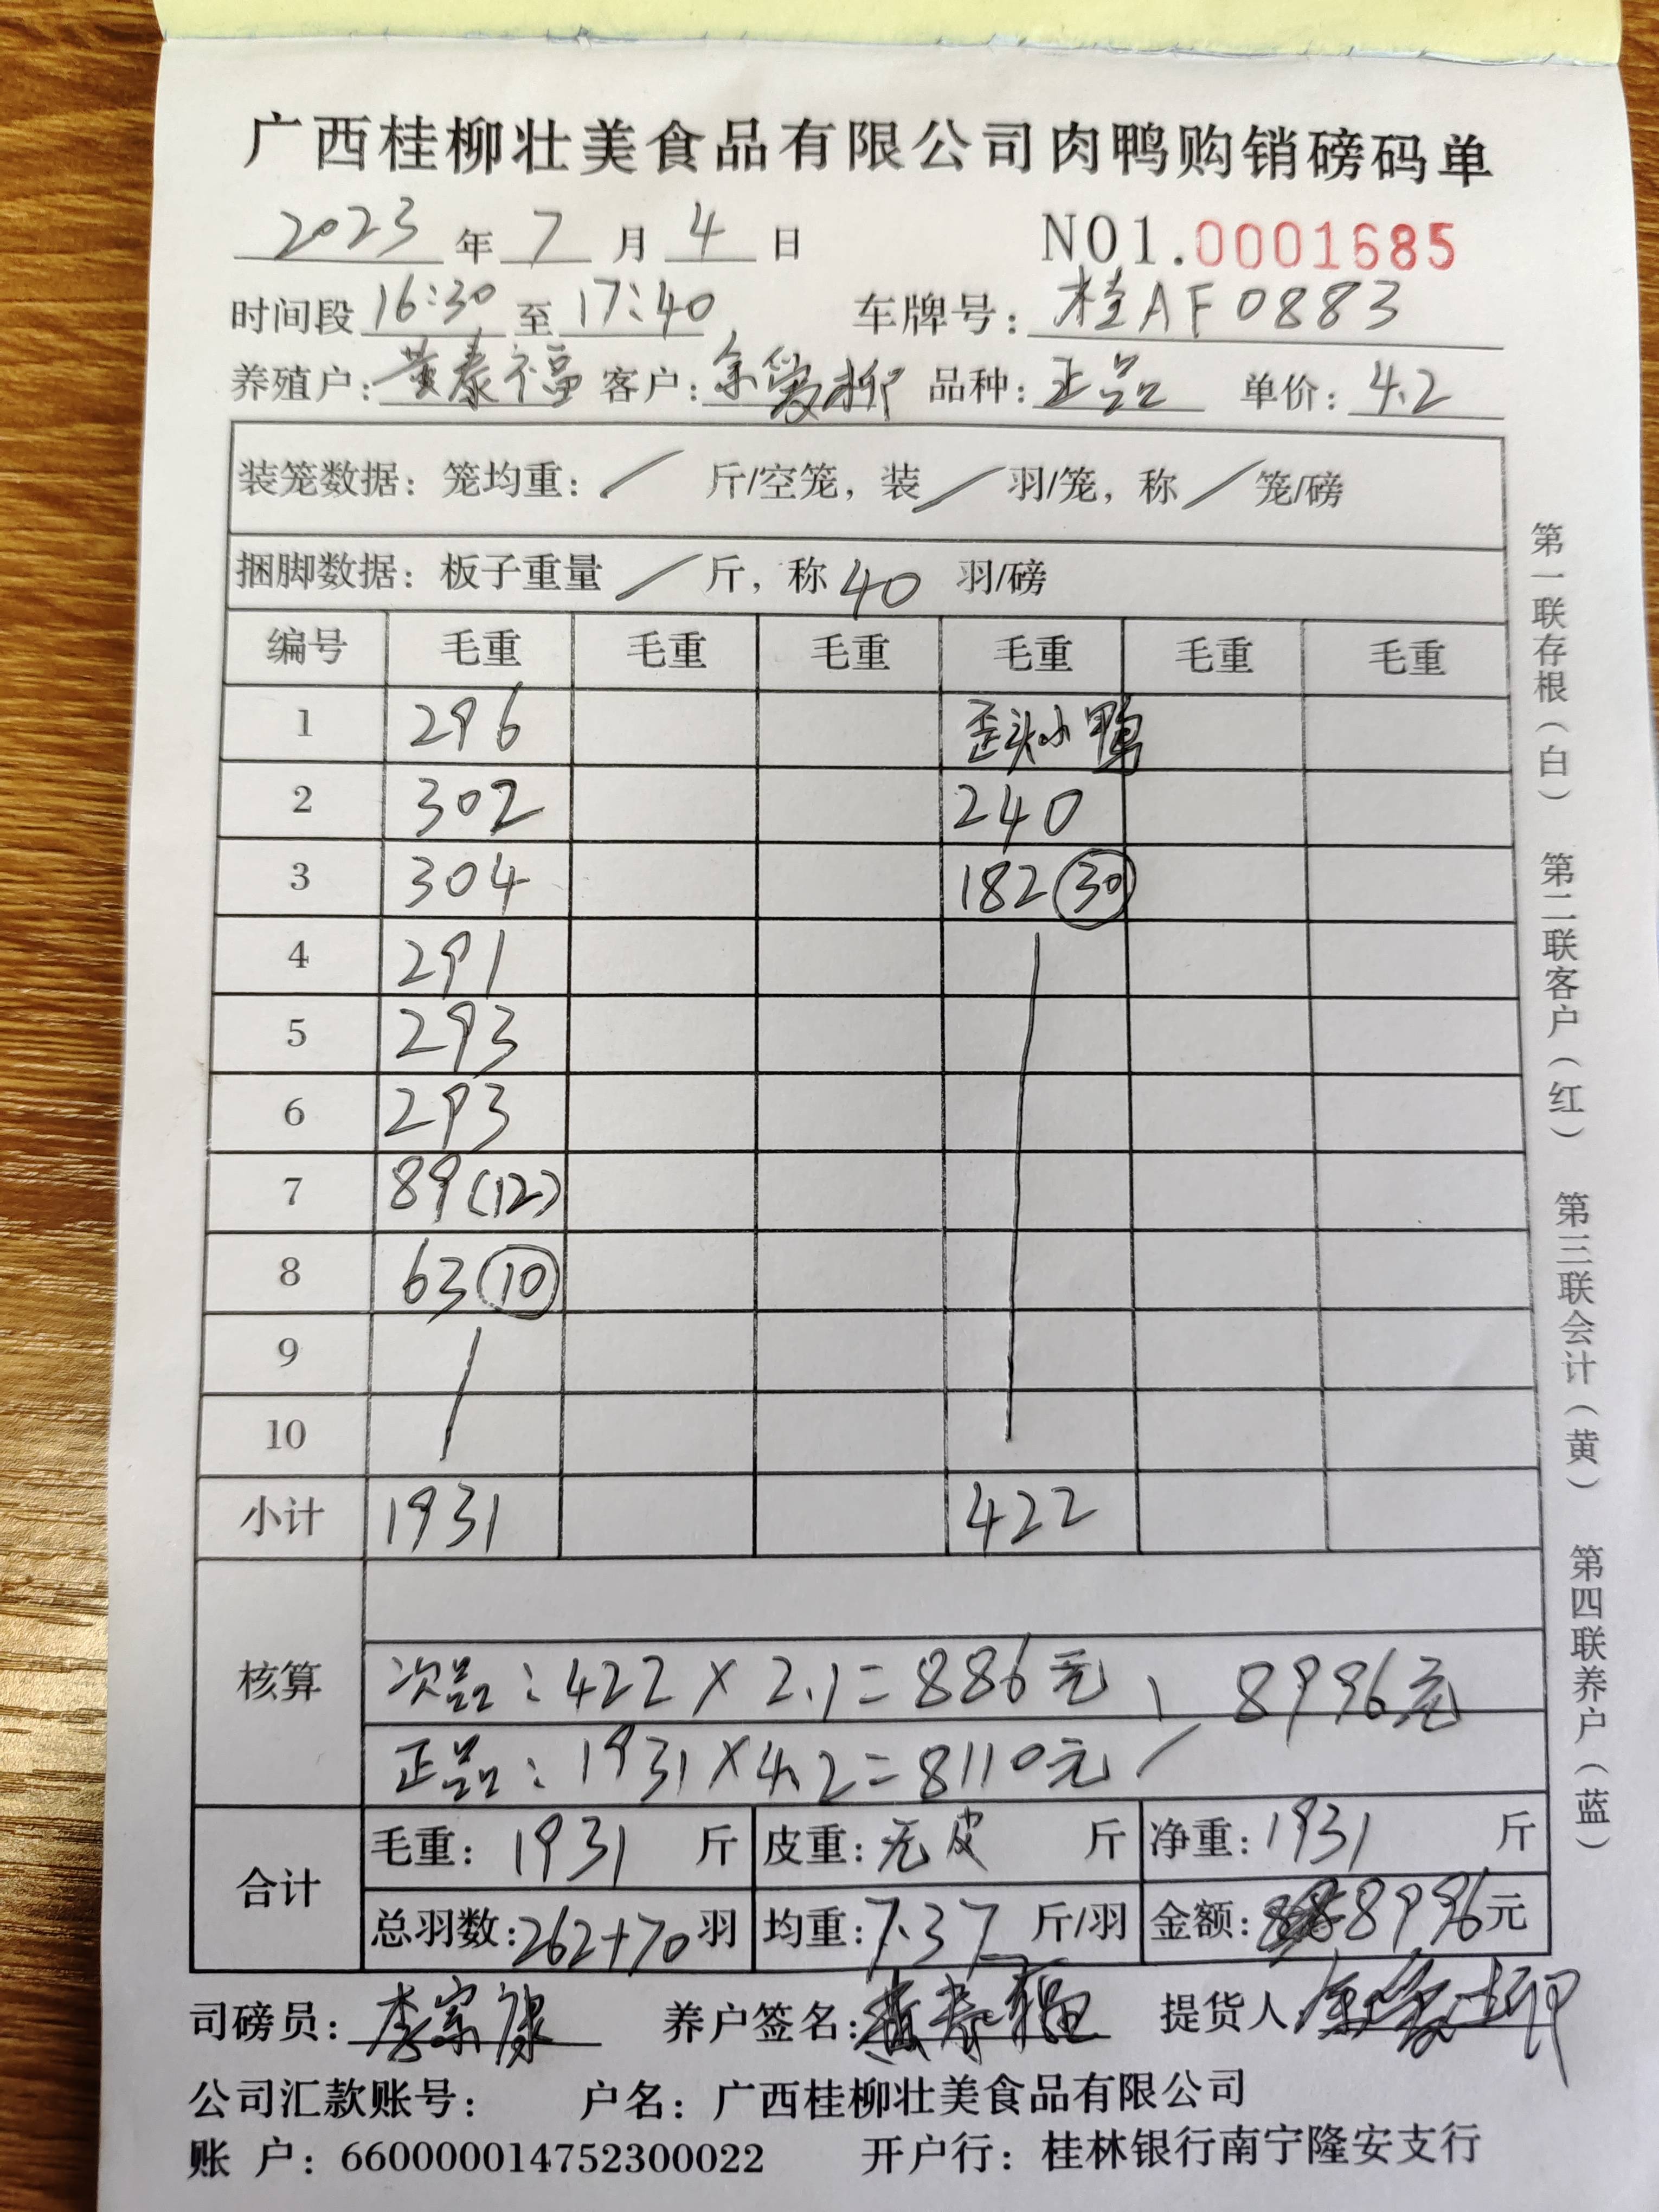 广西桂柳壮美食品有限公司肉鸭购销磅码单
2023 年 7 月 4 日 NO1.0001685
时间段 16:30 至 17:40 车牌号: 桂AF0883
养殖户: 黄泰福 客户: 余爱柳 品种: 正品 单价: 4.2
装笼数据: 笼均重: / 斤/空笼, 装 / 羽/笼, 称 / 笼/磅
捆脚数据: 板子重量 / 斤, 称 40 羽/磅
编号 毛重 毛重 毛重 毛重 毛重 毛重
1 296 歪头小鸭
2 302 240
3 304 182 30
4 291
5 293
6 293
7 89 (12)
8 63 10
9
10
小计 1931 422
核算
次品: 422 × 2.1 = 886元、 8996元
正品: 1931 × 4.2 = 8110元
合计
毛重: 1931 斤 皮重: 无皮 斤 净重: 1931 斤
总羽数: 262+70 羽 均重: 7.37 斤/羽 金额: 8996 元
司磅员: 李宗康 养户签名: 黄泰福 提货人 余爱柳
公司汇款账号: 户名: 广西桂柳壮美食品有限公司
账 户: 660000014752300022 开户行: 桂林银行南宁隆安支行
第一联存根(白) 第二联客户(红) 第三联会计(黄) 第四联养户(蓝)